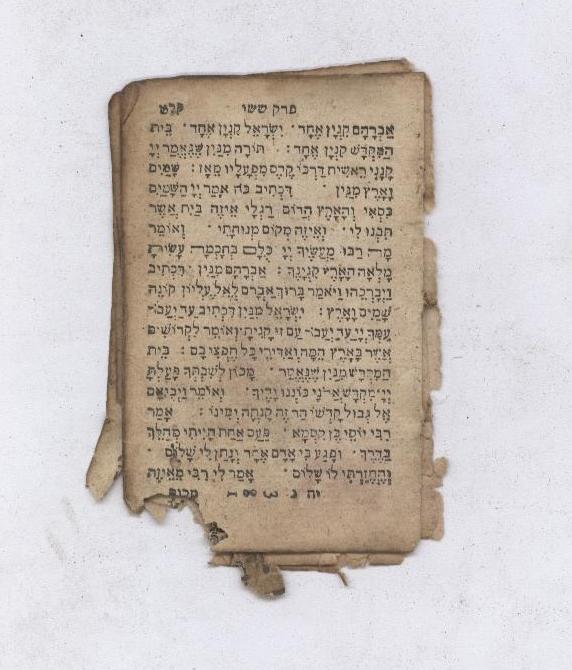 פרק ששי קלט
אַבְרָהָם קִנְיָן אֶחָד · יִשְׂרָאֵל קִנְיָן אֶחָד · בֵּית
הַמִּקְדָּשׁ קִנְיָן אֶחָד : תּוֹרָה מִנַּיִן שֶׁנֶּאֱמַר יְיָ
קָנָנִי רֵאשִׁית דַּרְכּוֹ קֶדֶם מִפְעָלָיו מֵאָז : שָׁמַיִם
וָאָרֶץ מִנַּיִן · דִּכְתִיב כֹּה אָמַר יְיָ הַשָּׁמַיִם
כִּסְאִי וְהָאָרֶץ הֲדוֹם רַגְלָי אֵיזֶה בַיִת אֲשֶׁר
תִּבְנוּ לִי · וְאֵיזֶה מָקוֹם מְנוּחָתִי · וְאוֹמֵר
מָה רַבּוּ מַעֲשֶׂיךָ יְיָ כֻּלָּם בְּחָכְמָה עָשִׂיתָ
מָלְאָה הָאָרֶץ קִנְיָנֶךָ : אַבְרָהָם מִנַּיִן דִּכְתִיב
וַיְבָרְכֵהוּ וַיֹּאמַר בָּרוּךְ אַבְרָם לְאֵל עֶלְיוֹן קוֹנֵה
שָׁמַיִם וָאָרֶץ : יִשְׂרָאֵל מִנַּיִן דִּכְתִיב עַד יַעֲבוֹר
עַמְּךָ יְיָ עַד יַעֲבוֹר עַם זוּ קָנִיתָ וְאוֹמֵר לִקְדוֹשִׁים
אֲשֶׁר בָּאָרֶץ הֵמָּה וְאַדִּירֵי כָּל חֶפְצִי בָם : בֵּית
הַמִּקְדָּשׁ מִנַּיִן שֶׁנֶּאֱמַר · מָכוֹן לְשִׁבְתְּךָ פָּעַלְתָּ
יְיָ מִקְדָּשׁ אֲדֹנָי כּוֹנְנוּ יָדֶיךָ · וְאוֹמֵר וַיְבִיאֵם
אֶל גְּבוּל קָדְשׁוֹ הַר זֶה קָנְתָה יְמִינוֹ : אָמַר
רַבִּי יוֹסֵי בֶּן קִסְמָא · פַּעַם אַחַת הָיִיתִי מְהַלֵּךְ
בַּדֶּרֶךְ · וּפָגַע בִּי אָדָם אֶחָד וְנָתַן לִי שָׁלוֹם ·
וְהֶחֱזַרְתִּי לוֹ שָׁלוֹם · אָמַר לִי רַבִּי מֵאֵיזֶה
מקום